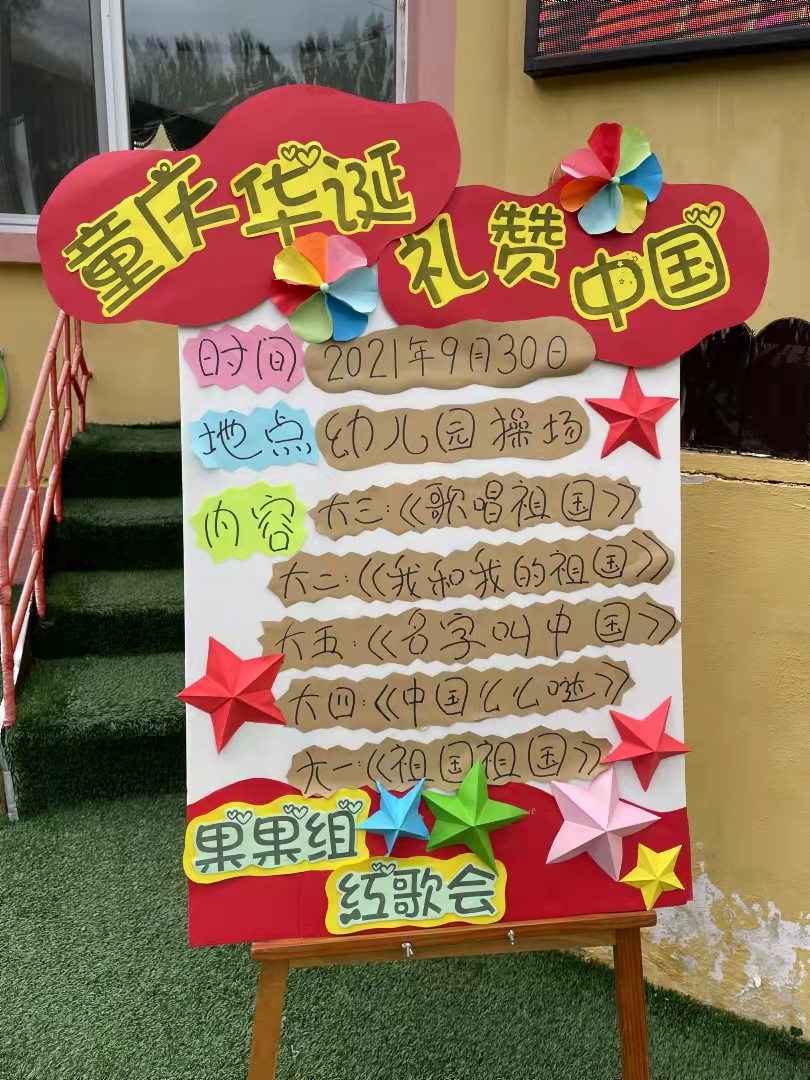 童庆华诞
礼赞中国
时间 2021年9月30日
地点 幼儿园操场
内容 大三:《歌唱祖国》
大二:《我和我的祖国》
大五:《名字叫中国》
大四:《中国么么哒》
大一:《祖国祖国》
果果组
红歌会